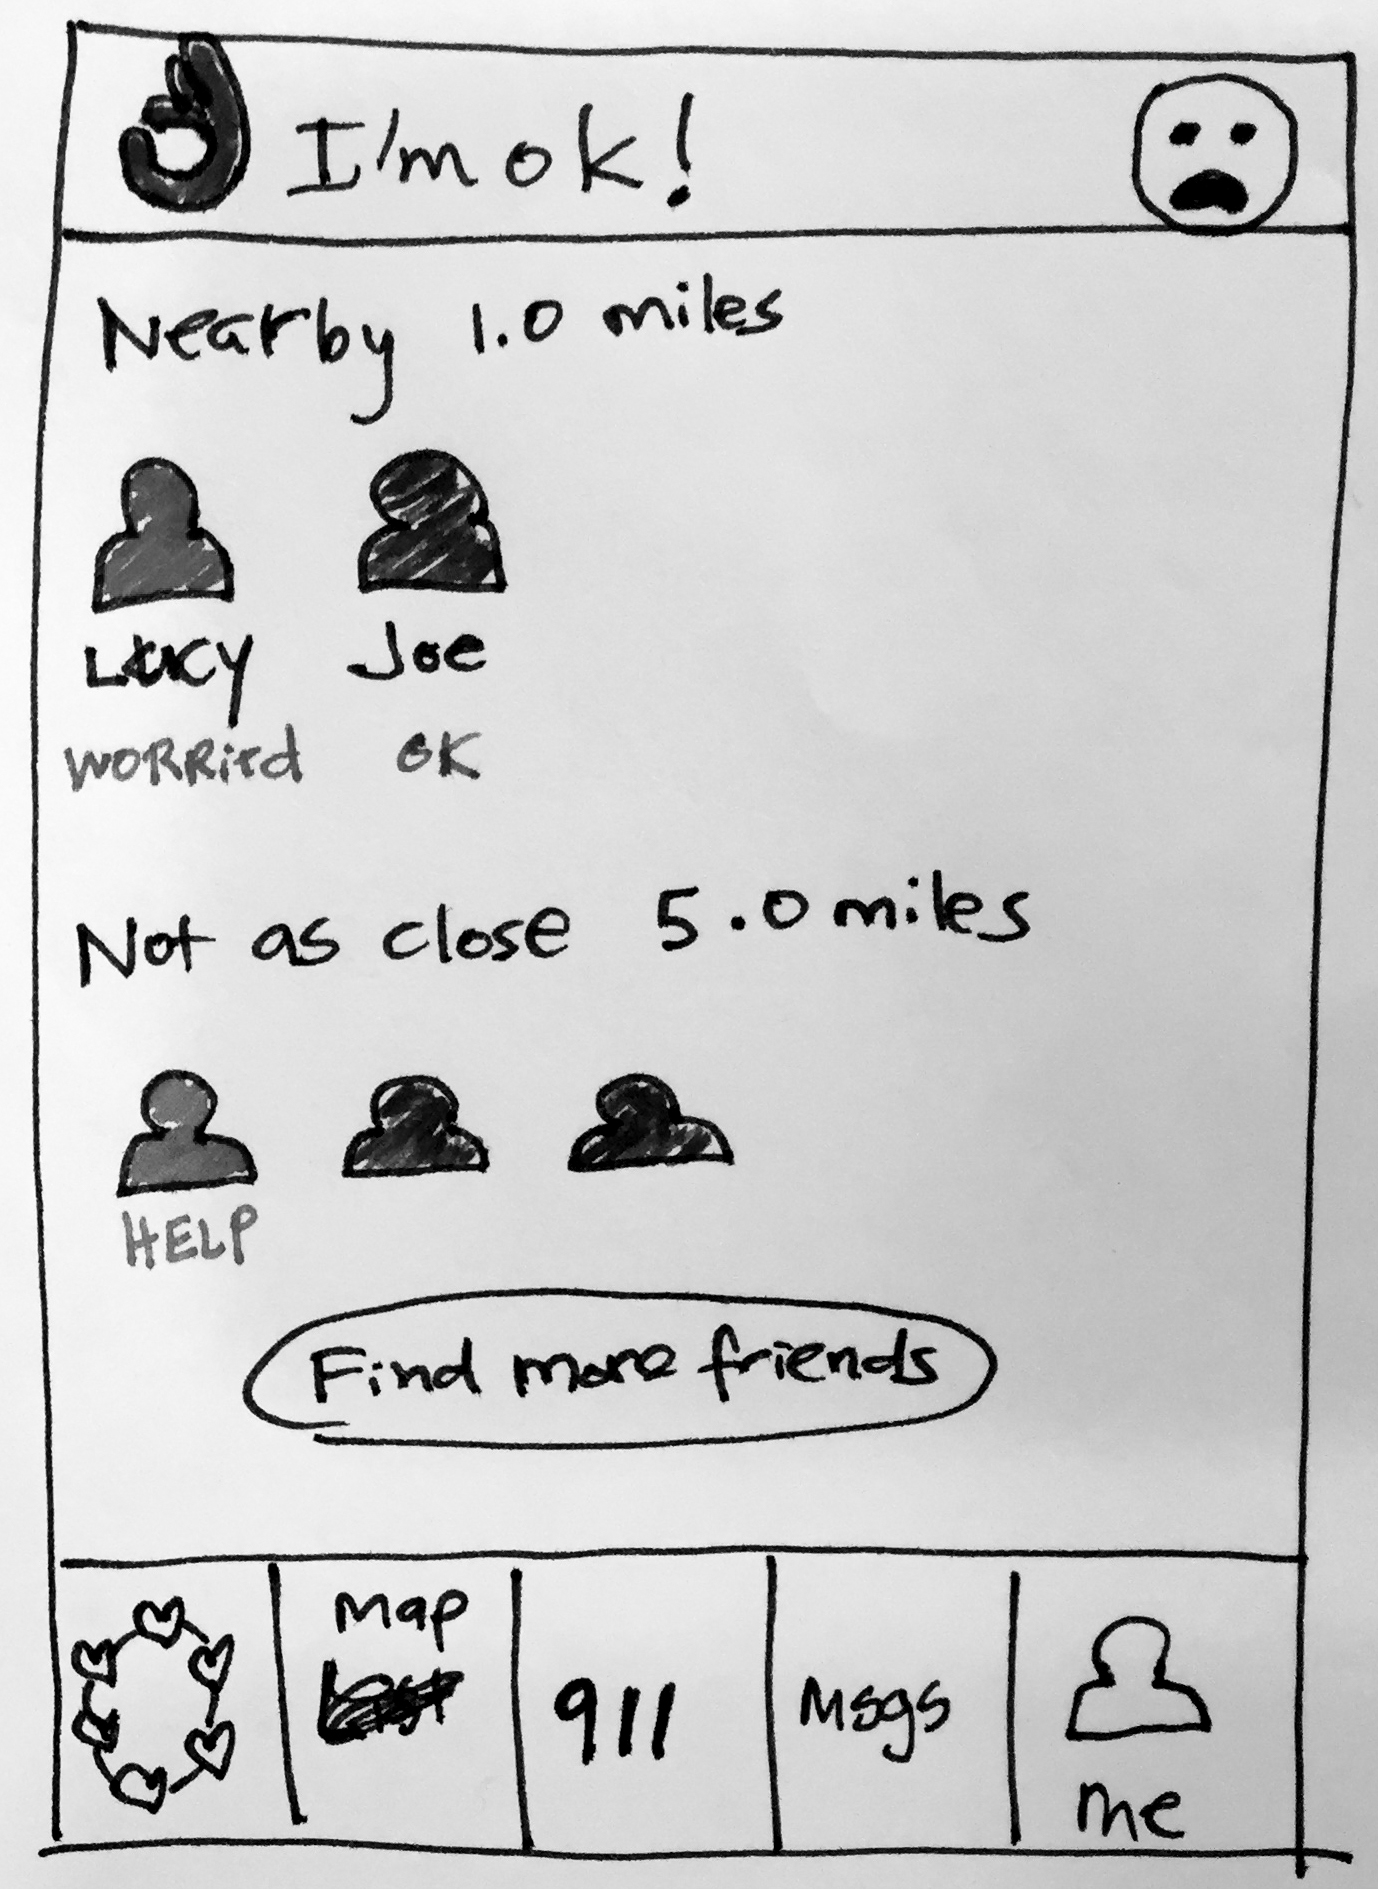 I'm ok!
Nearby 1.0 miles
Lucy Joe
WORRied OK
Not as close 5.0 miles
HELP
Find more friends
Map
911 Msgs
me